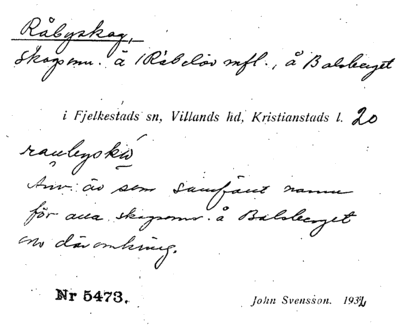 Råbyskog,
skogsomr. å 1 Råbelöv mfl., å Balsberget
i Fjelkestads sn, Villands hd, Kristianstads l. 20
Anv. äv som samfänt namn
för alla skogsomr. å Balsberget
o. däromkring.
Nr 5473.
John Svensson. 1932